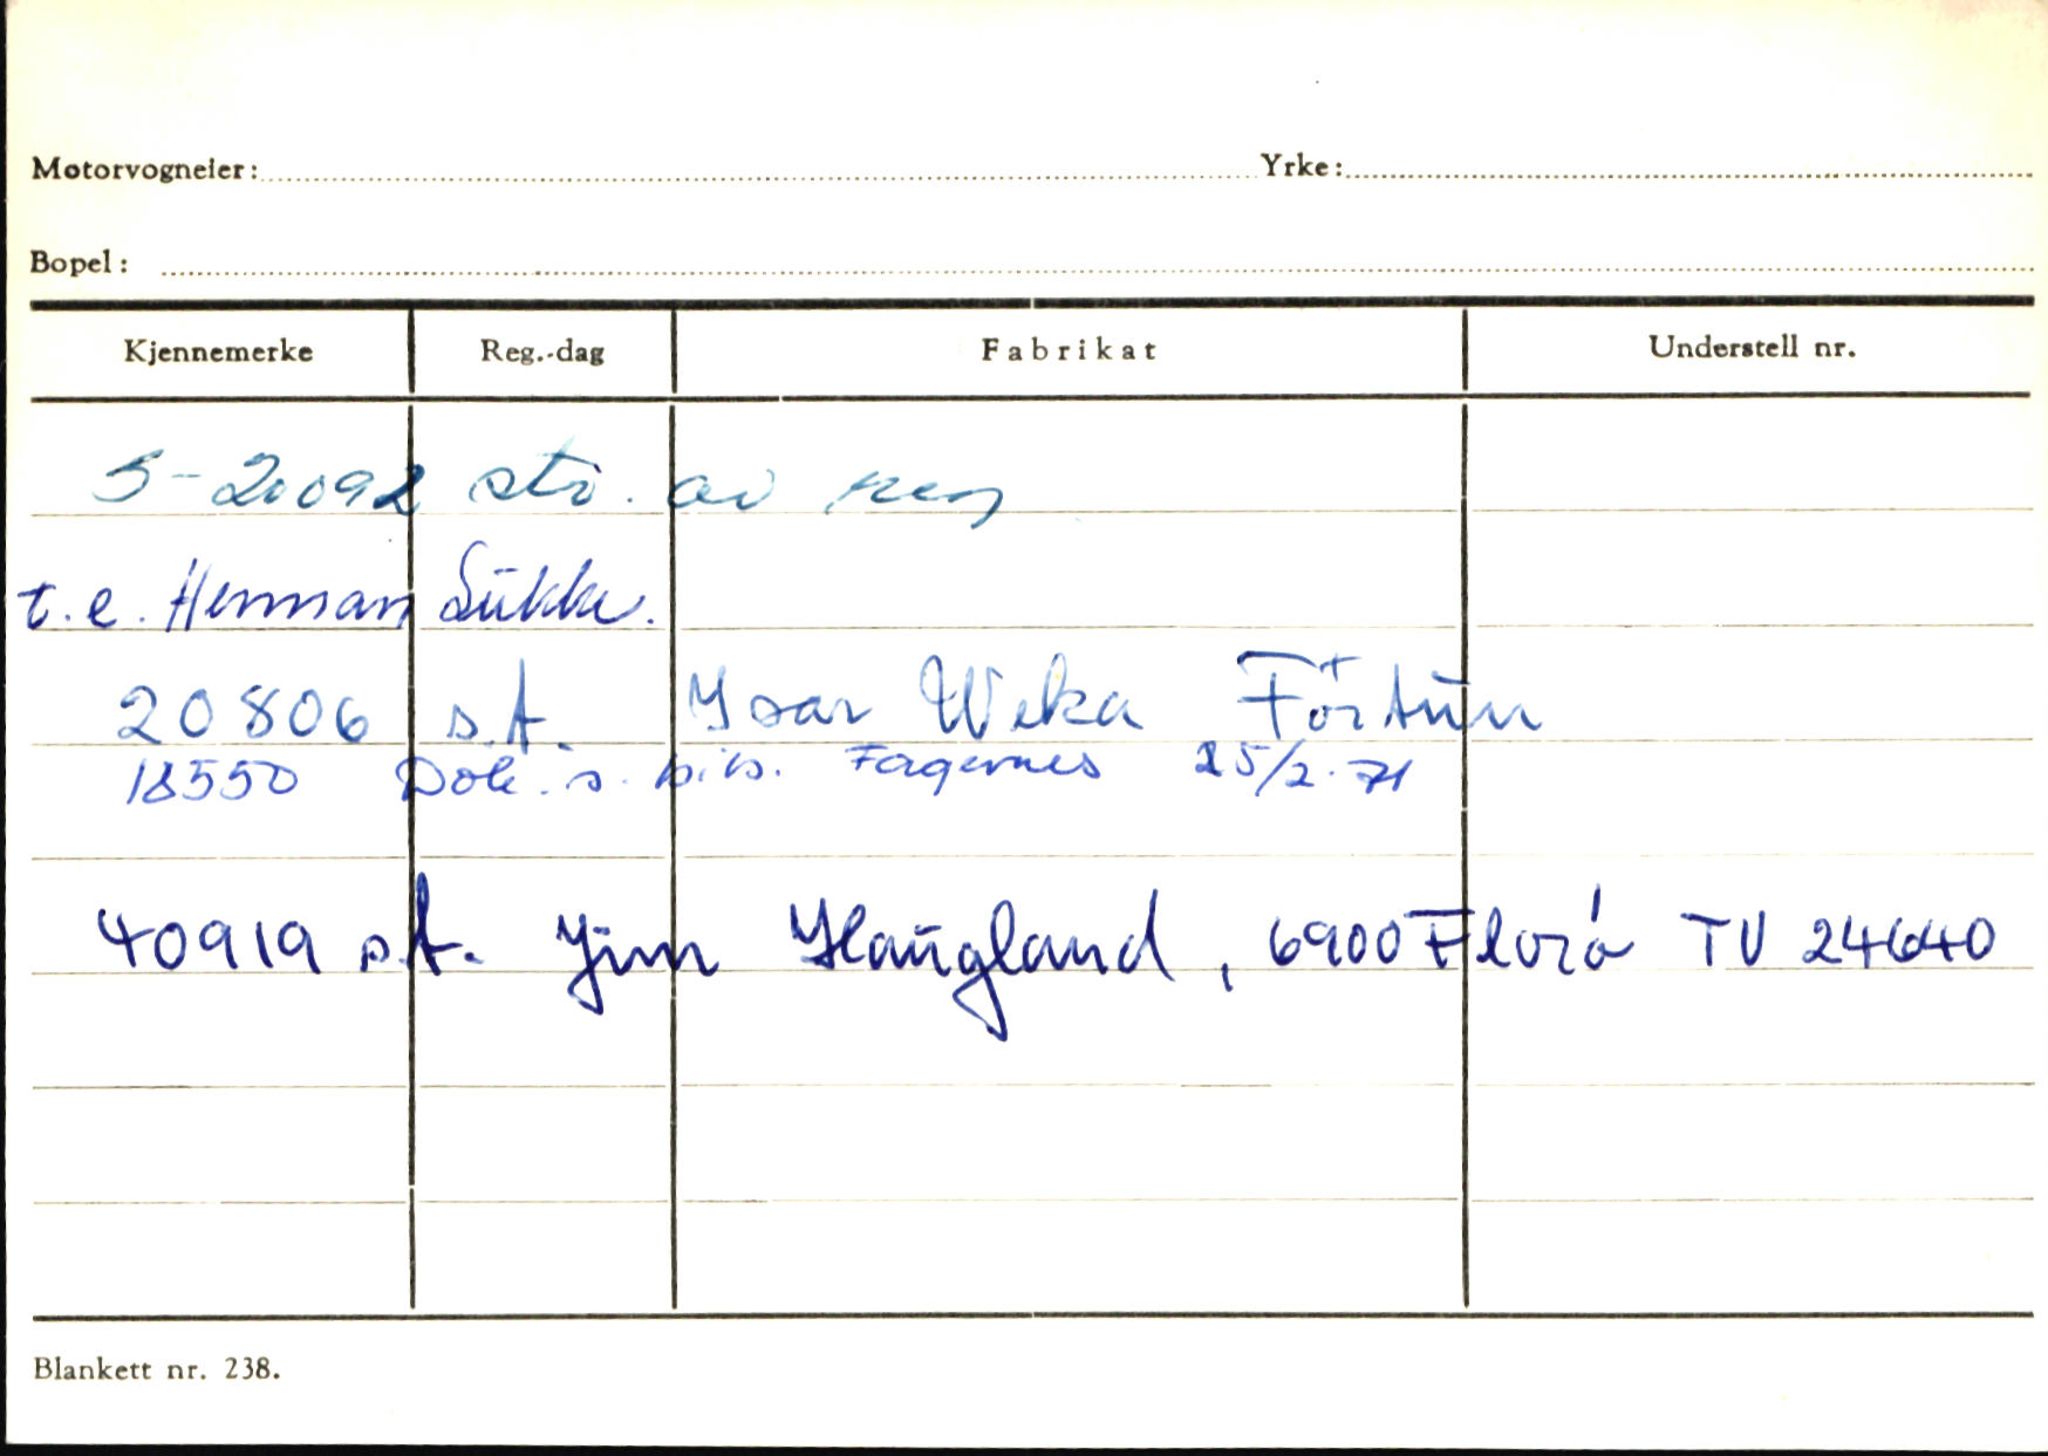 Motorvogneier: Yrke:
Bopel:
Kjennemerke Reg.-dag Fabrikat Understell nr.
S-20092 str. av reg
t.e. Herman Lükke.
20806 s.A. Ivar Weka Fortün
18550 Dok. s. bils. Fagernes 25/2.71
40919 s.A. Jim Haügland, 6900 Florø TV 24640
Blankett nr. 238.